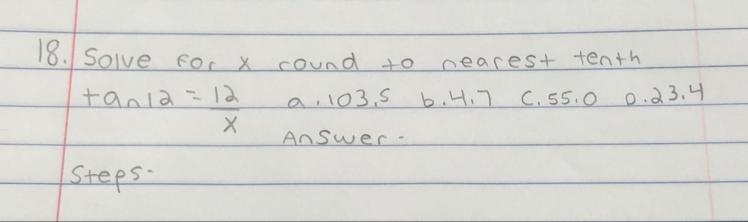 18. Solve for x round to nearest tenth
tan12 = 12/x a. 103.5 b. 4.7 C. 55.0 D. 23.4
Answer -
Steps-